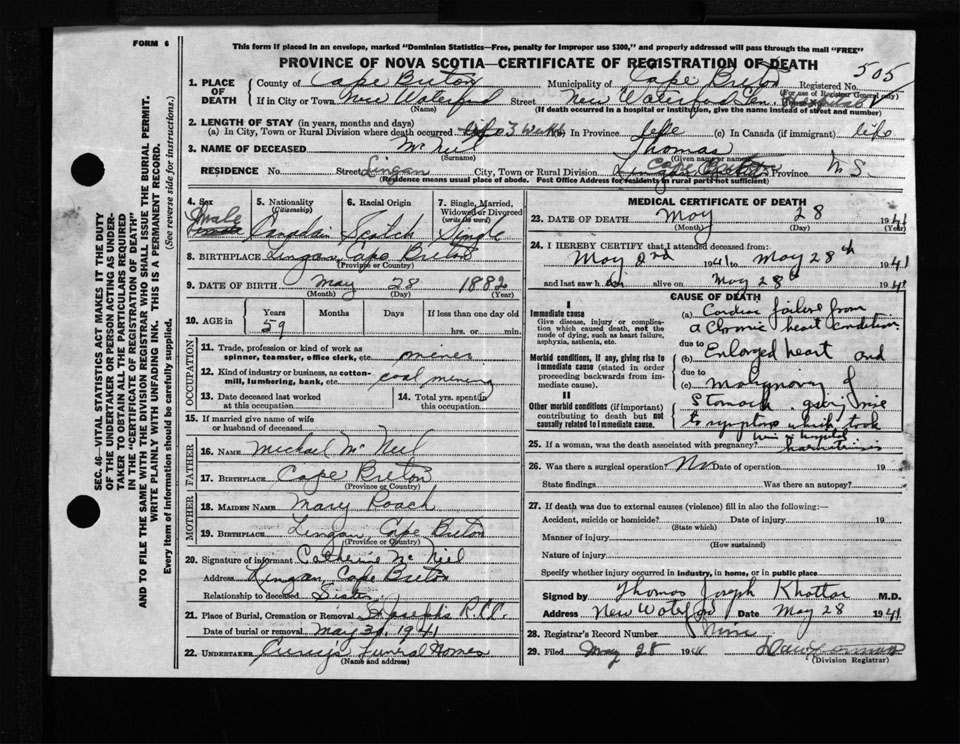 FORM 6
This form if placed in an envelope, marked "Dominion Statistics—Free, penalty for improper use $300," and properly addressed will pass through the mail "FREE"
PROVINCE OF NOVA SCOTIA—CERTIFICATE OF REGISTRATION OF DEATH
505
1. PLACE OF DEATH
County of Cape Breton Municipality of Cape Breton Registered No.
(For use of Registrar General only)
If in City or Town New Waterford Street New Waterford Gen. Hospital
(Name) (If death occurred in a hospital or institution, give the name instead of street and number)
2. LENGTH OF STAY (in years, months and days)
(a) In City, Town or Rural Division where death occurred 3 weeks (b) In Province life (c) In Canada (if immigrant) life
3. NAME OF DECEASED McNeil Thomas
(Surname) (Given name or names)
RESIDENCE No. Street Lingan City, Town or Rural Division Cape Breton Province N.S.
(Residence means usual place of abode. Post Office Address for residents in rural parts not sufficient)
4. Sex
Male
5. Nationality
(Citizenship)
Canadain
6. Racial Origin
Scotch
7. Single, Married, Widowed or Divorced
(write the word)
Single
8. BIRTHPLACE Lingan, Cape Breton
(Province or Country)
9. DATE OF BIRTH May 28 1882
(Month) (Day) (Year)
10. AGE in
Years Months Days If less than one day old
59 hrs. or min.
OCCUPATION
11. Trade, profession or kind of work as spinner, teamster, office clerk, etc. miner
12. Kind of industry or business, as cotton-mill, lumbering, bank, etc. coal mining
13. Date deceased last worked at this occupation
14. Total yrs. spent in this occupation
15. If married give name of wife or husband of deceased
FATHER
16. NAME Michael McNeil
17. BIRTHPLACE Cape Breton
(Province or Country)
MOTHER
18. MAIDEN NAME Mary Roach
19. BIRTHPLACE Lingan, Cape Breton
(Province or Country)
20. Signature of informant Catherine McNeil
Address Lingan, Cape Breton
Relationship to deceased Sister
21. Place of Burial, Cremation or Removal St. Joseph's
Date of burial or removal 1941
22. UNDERTAKER Curry's Funeral Homes
(Name and address)
MEDICAL CERTIFICATE OF DEATH
23. DATE OF DEATH May 28 1941
(Month) (Day) (Year)
24. I HEREBY CERTIFY that I attended deceased from:
May 2nd 1941 to May 28th 1941
and last saw h alive on May 28th 1941
CAUSE OF DEATH
I
Immediate cause
Give disease, injury or complication which caused death, not the mode of dying, such as heart failure, asphyxia, asthenia, etc.
(a) Cardiac failure from
a Chronic heart condition
due to
Morbid conditions, if any, giving rise to immediate cause (stated in order proceeding backwards from immediate cause).
(b) Enlarged heart and
due to
(c) Malignancy of
II
Other morbid conditions (if important) contributing to death but not causally related to immediate cause.
Stomach gave rise
to symptoms which took
him to hospital
25. If a woman, was the death associated with pregnancy?
26. Was there a surgical operation? No Date of operation 19
State findings Was there an autopsy?
27. If death was due to external causes (violence) fill in also the following:—
Accident, suicide or homicide? Date of injury 19
(State which)
Manner of injury
(How sustained)
Nature of injury
Specify whether injury occurred in industry, in home, or in public place
Signed by Thomas Joseph Khattar M.D.
Address New Waterford Date May 28 1941
28. Registrar's Record Number
29. Filed May 28 194
(Division Registrar)
SEC. 46—VITAL STATISTICS ACT MAKES IT THE DUTY
OF THE UNDERTAKER OR PERSON ACTING AS UNDER-
TAKER TO OBTAIN ALL THE PARTICULARS REQUIRED
IN THE "CERTIFICATE OF REGISTRATION OF DEATH"
AND TO FILE THE SAME WITH THE DIVISION REGISTRAR WHO SHALL ISSUE THE BURIAL PERMIT.
WRITE PLAINLY WITH UNFADING INK. THIS IS A PERMANENT RECORD.
Every item of information should be carefully supplied. (See reverse side for instructions.)